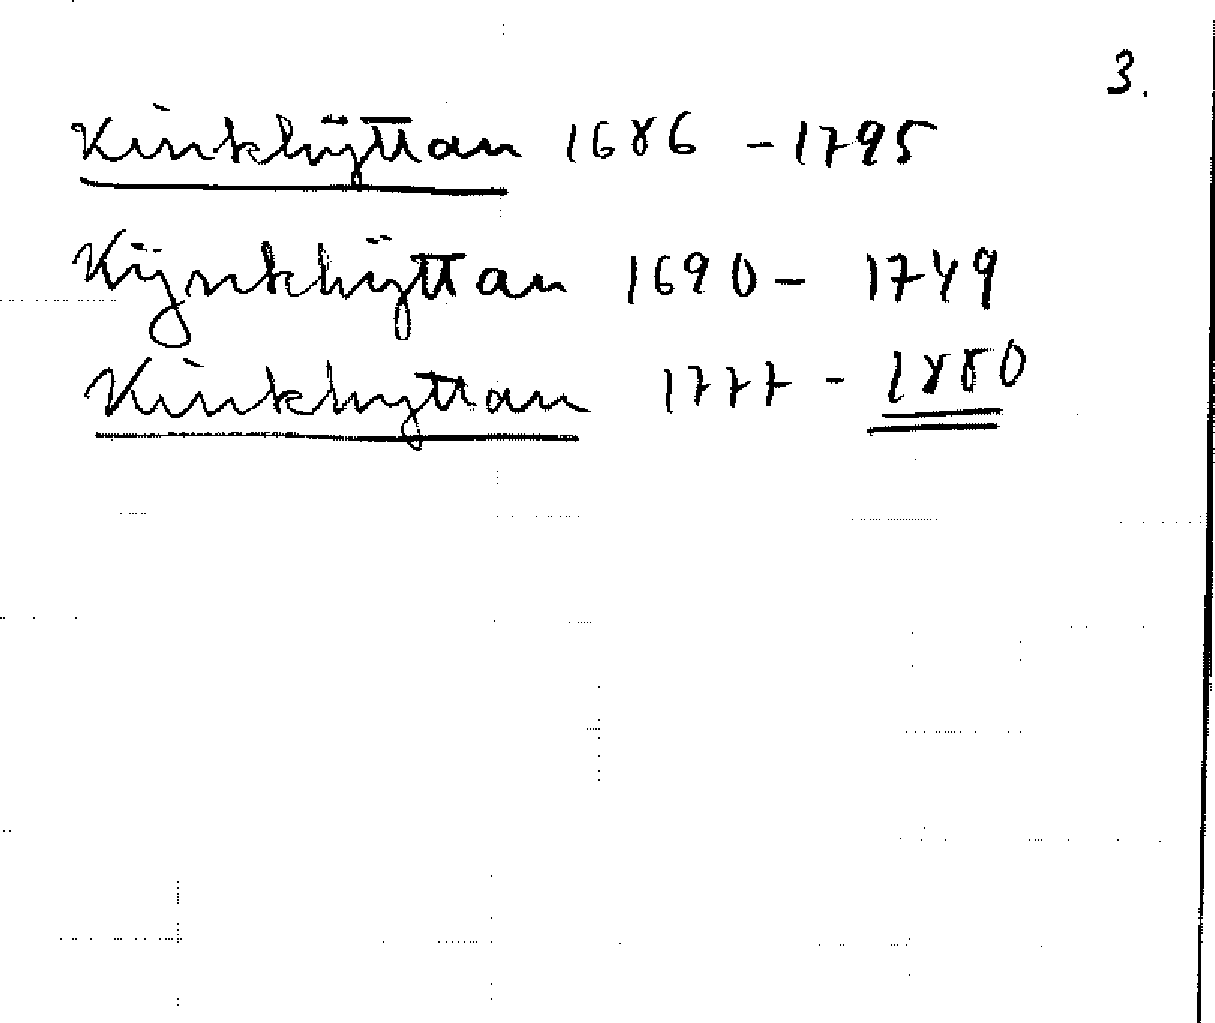 3.
Kinkhÿttan 1686 - 1795
Kÿnkhÿttan 1690 - 1749
Kinkhyttan 1777 - 1880